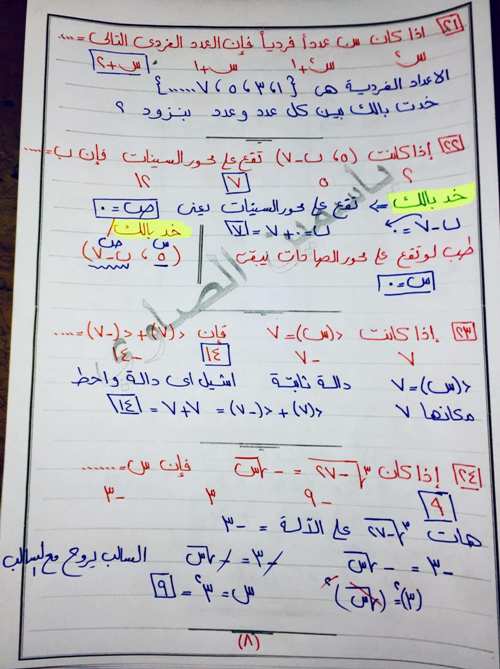 ٢١) إذا كان س عدداً فردياً فإن العدد الفردى التالى = ....
س٢ س٢+١ س+١ س+٢
الأعداد الفردية هى {١، ٣، ٥، ٧، .....}
خدت بالك بين كل عدد وعدد بنزود ٢
٢٢) إذا كانت (٥، ب-٧) تقع على محور السينات فإن ب = ....
٢ ٥ ٧ ١٢
خد بالك <= تقع على محور السينات يعنى ص = ٠
ب-٧ = ٠ ب = ٠+٧ = ٧ خد بالك
طب لو تقع على محور الصادات نيقى س ص
س = ٠ (٥، ب-٧)
ياسمين الصاوى
٢٣) إذا كانت د(س) = ٧ فإن د(٧)+د(-٧) = ....
٧ -٧ ١٤ -١٤
د(س) = ٧ دالة ثابتة اشيل اى دالة واحط
مكانها ٧ د(٧)+د(-٧) = ٧+٧ = ١٤
٢٤) إذا كان ٣√-٢٧ = -√س فإن س = ......
٩ -٩ ٣ -٣
هات ٣√-٢٧ على الآلة = -٣
-٣ = -√س -٣ = -√س السالب يروح مع السالب
(٣)٢ = (√س)٢ س = ٣٢ = ٩
(٨)